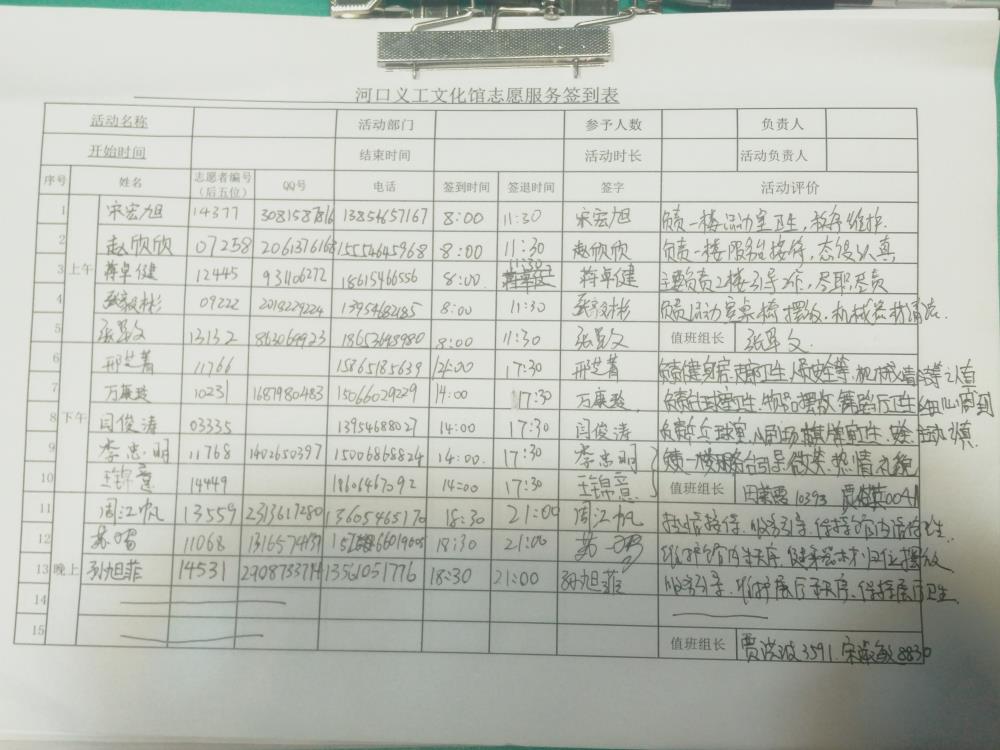 河口义工文化馆志愿服务签到表
活动名称 活动部门 参予人数 负责人
开始时间 结束时间 活动时长 活动负责人
序号 姓名 志愿者编号（后五位） QQ号 电话 签到时间 签退时间 签字 活动评价
1 宋宏旭 14377 3081587816 13854657167 8:00 11:30 宋宏旭 负责一楼活动室卫生，秩序维护.
2 赵欣欣 07258 2061376168 15554645968 8:00 11:30 赵欣欣 负责一楼服务台接待，态度认真
3 上午 蒋卓健 12445 931106272 18615460556 8:00. 11:30 蒋卓健 主要负责2楼引导工作，尽职尽责
4 09222 2018229224 13954682185 8:00 11:30 负责活动室桌椅摆放.机械器材清洁.
5 13132 863069923 18653698980 8:00 11:30 值班组长
6 邢芝菁 11766 15865185639 14:00 17:30 邢芝菁
7 万康璇 10231 1687980483 15066029229 14:00 17:30 万康璇.
8 下午 闫俊涛 03335 13954688027 14:00 17:30 闫俊涛
9 李忠明 11768 1402650397 15006868824 14:00. 17:30 李忠明 负责一楼服务台引导微笑.热情礼貌
10 王锦意 14449 18606467092 14:00 17:30 王锦意 值班组长 10393 0041
11 周江帆 13559 2313617280 13605465170 18:30 21:00 周江帆
12 11068 1316574137 18:30 21:00
13 晚上 孙旭菲 14531 2908733714 13561051776 18:30 21:00 孙旭菲 服务引导.维护展厅秩序.保持展厅卫生.
14
15 值班组长 贾洪波3591. 宋敏8830